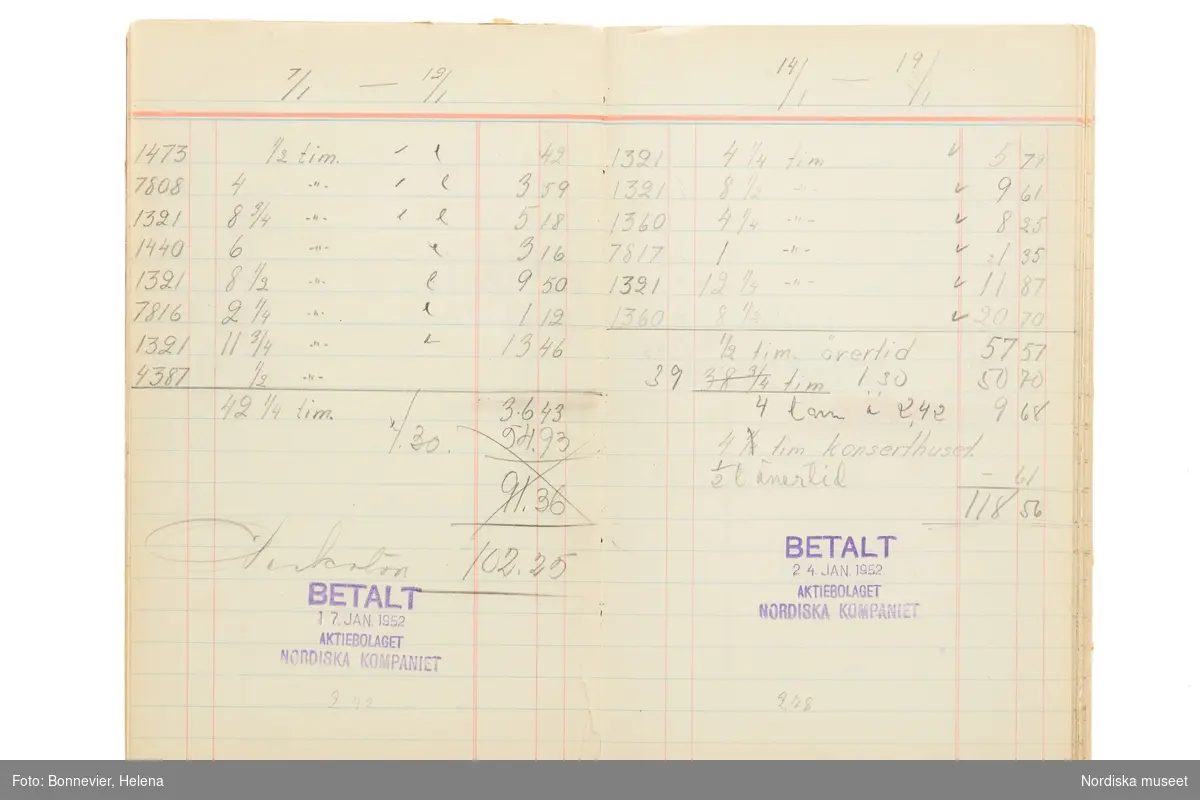 7/1 — 12/1
1473 1/2 tim. 42
7808 4 -"- 3 59
1321 8 3/4 -"- 5 18
1440 6 -"- 3 16
1321 8 1/2 -"- 9 50
7816 2 1/4 -"- 1 12
1321 11 3/4 -"- 13 46
4387 1/2 -"-
42 1/4 tim. 36 43
1/.30. 54.93
91.36
102.25
BETALT
17. JAN. 1952
AKTIEBOLAGET
NORDISKA KOMPANIET
2 42
14/1 — 19/1
1321 4 1/4 tim ✓ 5 79
1321 8 1/2 -"- ✓ 9 61
1360 4 1/4 -"- ✓ 8 25
7817 1 -"- ✓ 1 35
1321 12 1/4 -"- ✓ 11 87
1360 8 1/2 ✓ 20 70
1/2 tim. övertid 57 57
39 38 3/4 tim 1.30 50 70
4 tim à 2,42 9 68
4 tim konserthuset
1/2 t övertid – 61
118 56
BETALT
24. JAN. 1952
AKTIEBOLAGET
NORDISKA KOMPANIET
Foto: Bonnevier, Helena
Nordiska museet